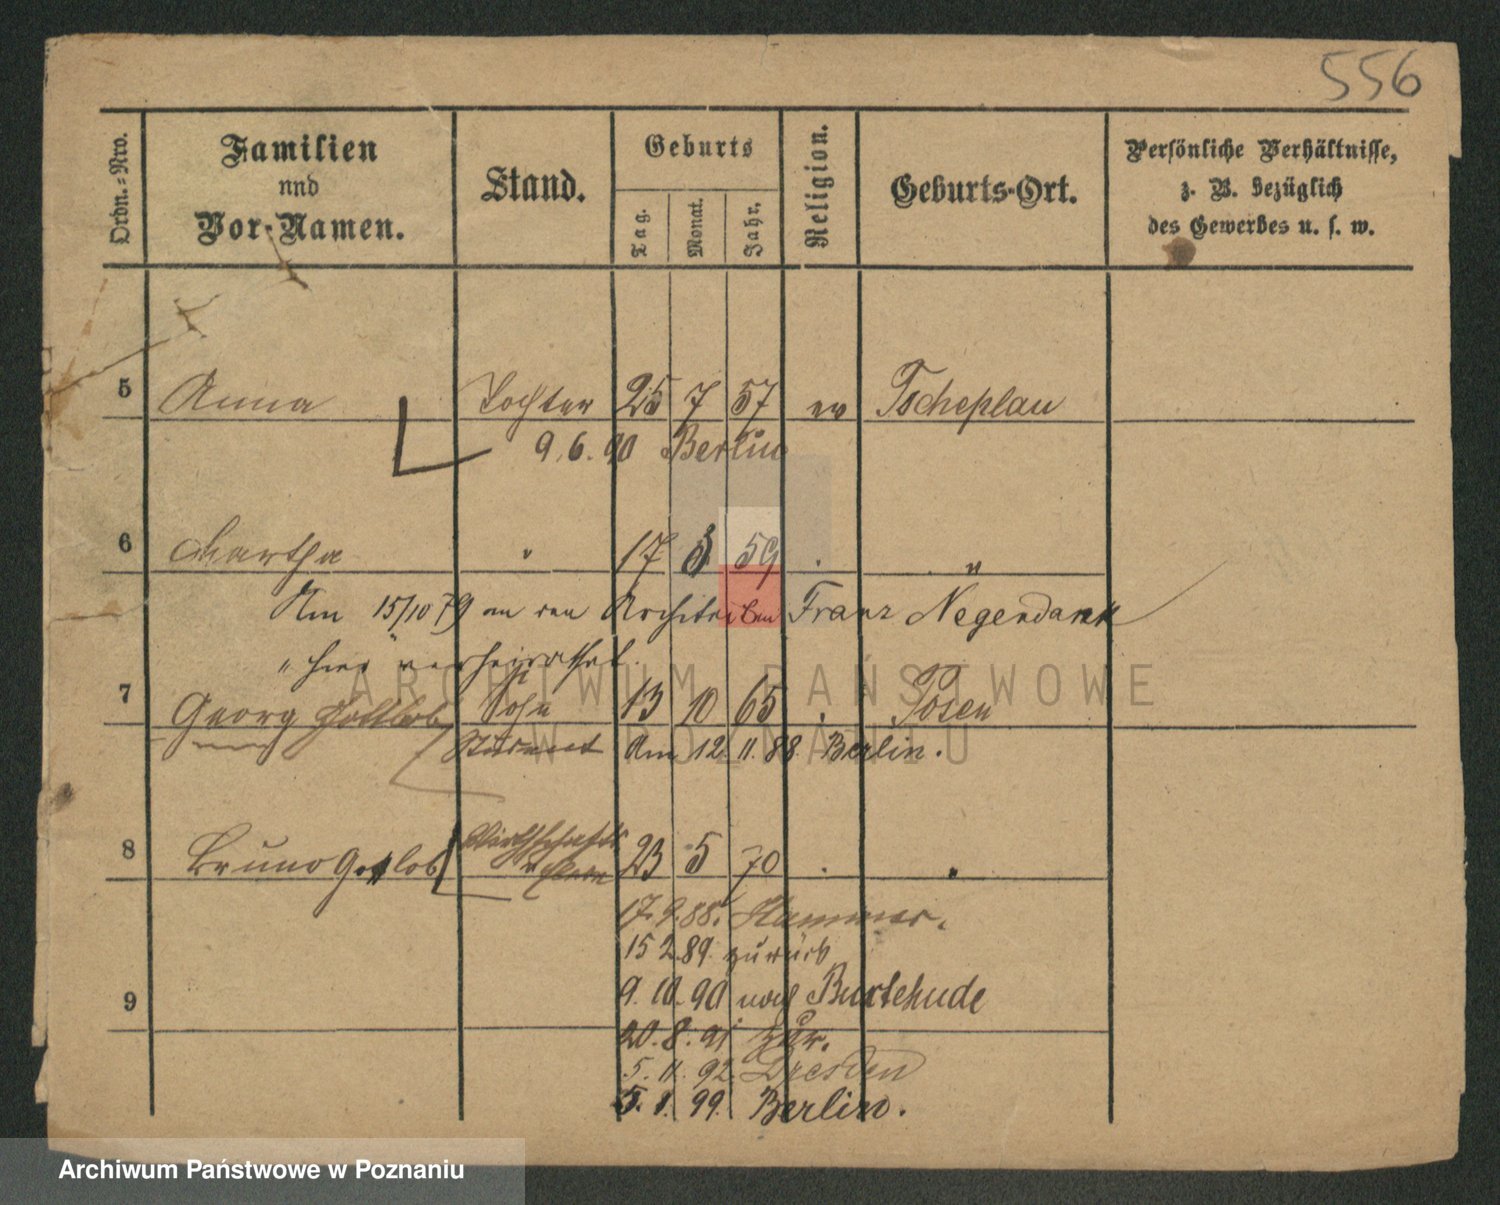 556
Ordn.-Nro.
Familien
und
Vor-Namen.
Stand.
Geburts
Tag.
Monat.
Jahr.
Religion.
Geburts-Ort.
Persönliche Verhältnisse,
z. B. bezüglich
des Gewerbes u. s. w.
5 Anna Tochter 25 7 57 ev Tscheplau
9.6.90 Berlin
6 Martha " 17 59 . "
Am 15/10 79 an den Architekten Franz Negendank
hier verheirathet.
7 Georg Gottlob Sohn 13 10 65 . Posen
Student Am 12 11. 88. Berlin.
8 Bruno Gottlob Wirthschafts 23 5 70 . "
Eleve
17.9.88. Hammer.
15 2.89. zurück
9. 10. 90 nach Buxtehude
9
20. 8. 91 zur.
5. 11. 92. Dresden
5. 1. 99. Berlin.
ARCHIWUM PAŃSTWOWE
W POZNANIU
Archiwum Państwowe w Poznaniu